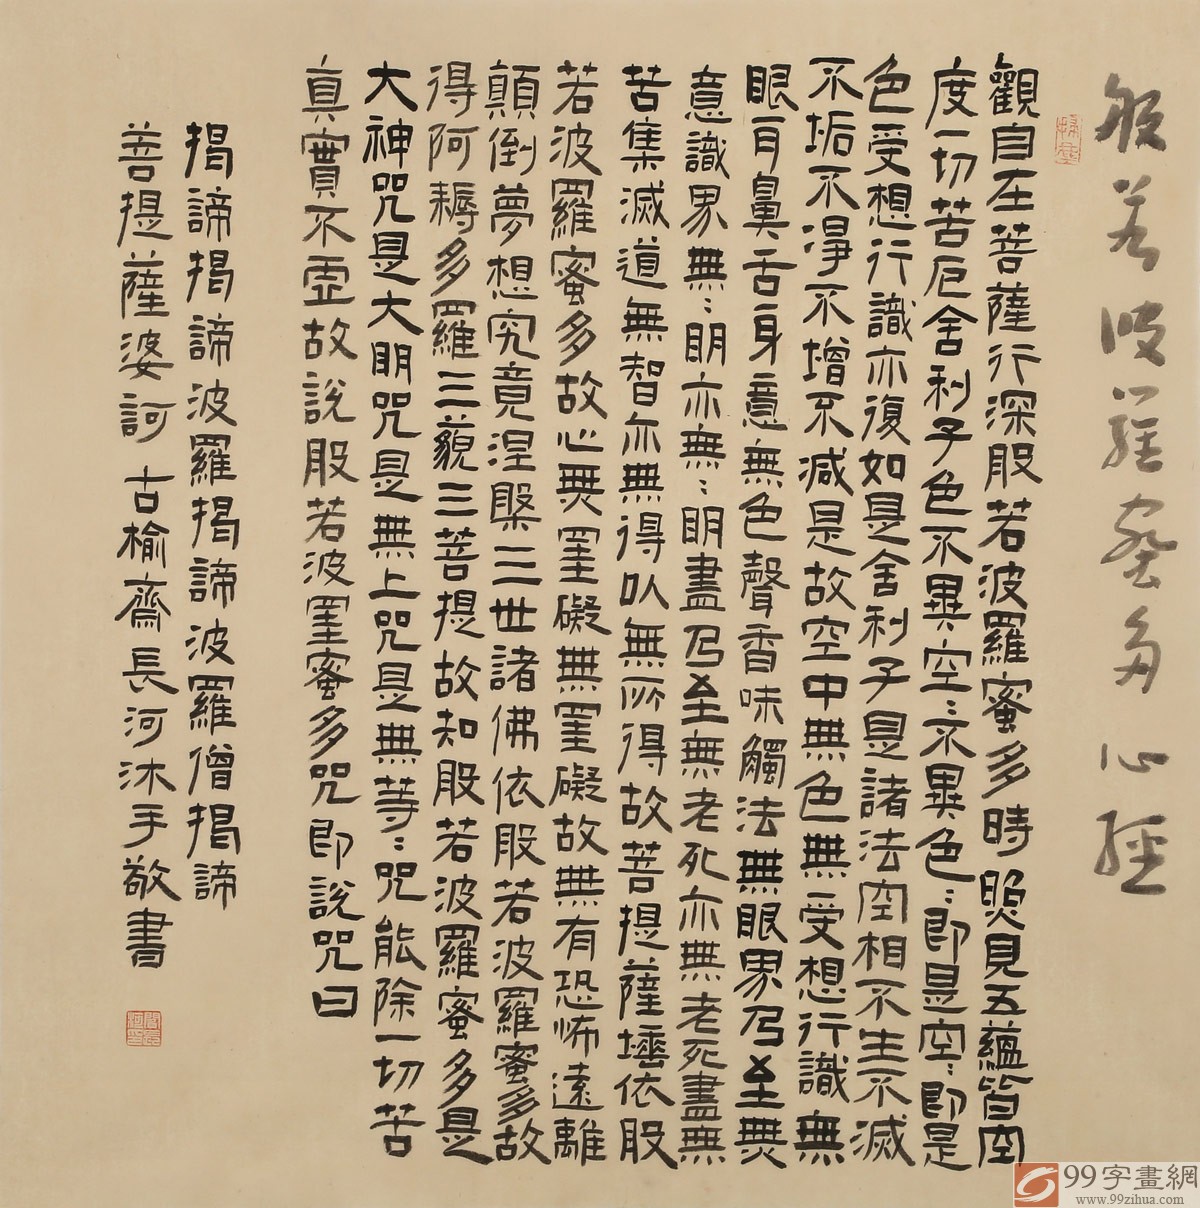 般若波羅蜜多心經
觀自在菩薩行深般若波羅蜜多時照見五蘊皆空
度一切苦厄舍利子色不異空〻不異色〻即是空〻即是
色受想行識亦復如是舍利子是諸法空相不生不滅
不垢不淨不增不減是故空中無色無受想行識無
眼耳鼻舌身意無色聲香味觸法無眼界乃至無
意識界無〻明亦無〻明盡乃至無老死亦無老死盡無
苦集滅道無智亦無得以無所得故菩提薩埵依般
若波羅蜜多故心無罣礙無罣礙故無有恐怖遠離
顛倒夢想究竟涅槃三世諸佛依般若波羅蜜多故
得阿耨多羅三藐三菩提故知般若波羅蜜多是
大神咒是大明咒是無上咒是無等〻咒能除一切苦
真實不虛故說般若波罣蜜多咒即說咒曰
揭諦揭諦波羅揭諦波羅僧揭諦
菩提薩婆訶 古榆齋長河沐手敬書
99字畫網
www.99zihua.com